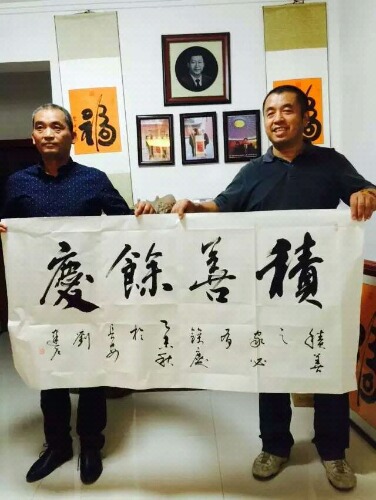 福
福
積善餘慶
積善
之
家必
有
餘慶
乙未秋
於
長安
劉